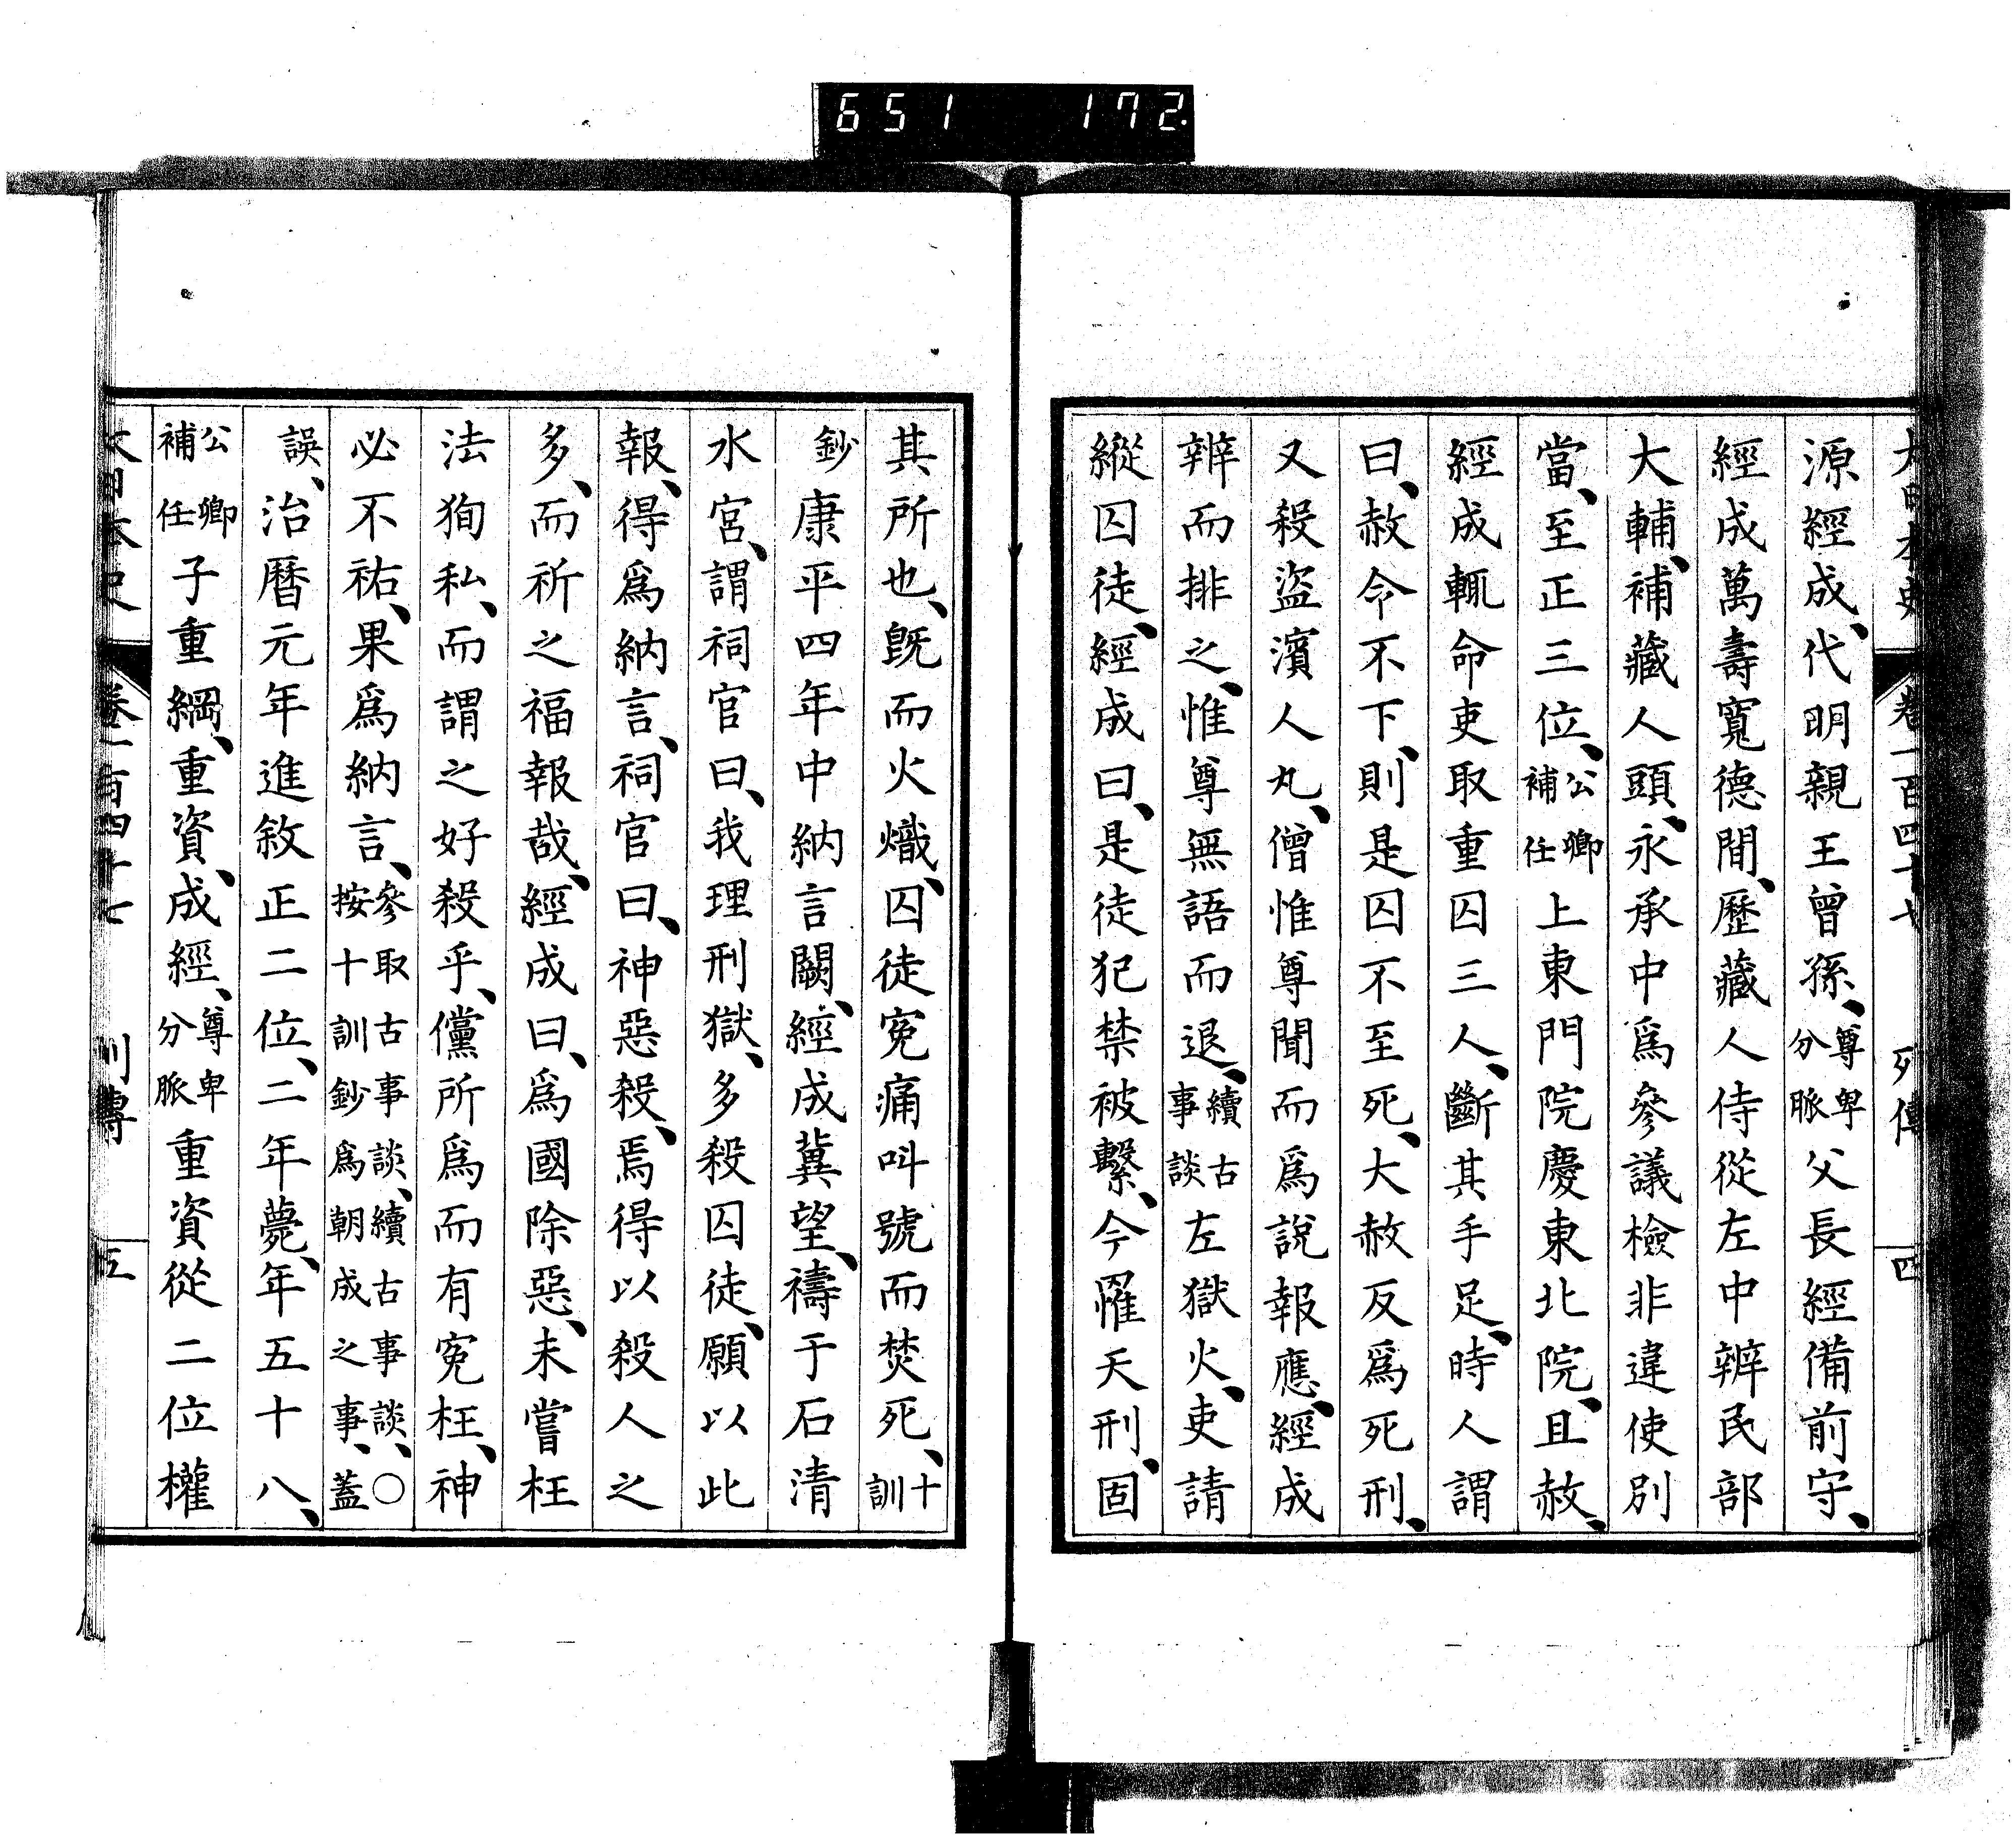 651 172
大日本史 卷一百四十七 列傳 四
源經成、代明親王曾孫、尊卑分脈父長經備前守、
經成萬壽寬德間、歷藏人侍從左中辨民部
大輔、補藏人頭、永承中爲參議檢非違使別
當、至正三位、公卿補任上東門院慶東北院、且赦、
經成輒命吏取重囚三人、斷其手足、時人謂
曰、赦令不下、則是囚不至死、大赦反爲死刑、
又殺盜濱人丸、僧惟尊聞而爲說報應、經成
辨而排之、惟尊無語而退、續古事談左獄火、吏請
縱囚徒、經成曰、是徒犯禁被繫、今罹天刑、固
其所也、旣而火熾、囚徒冤痛叫號而焚死、十訓
鈔康平四年中納言闕、經成冀望、禱于石清
水宮、謂祠官曰、我理刑獄、多殺囚徒、願以此
報、得爲納言、祠官曰、神惡殺、焉得以殺人之
多、而祈之福報哉、經成曰、爲國除惡、未嘗枉
法狥私、而謂之好殺乎、儻所爲而有冤枉、神
必不祐、果爲納言、參取古事談、續古事談、○按十訓鈔爲朝成之事、蓋
誤、治曆元年進敘正二位、二年薨、年五十八、
公卿補任子重綱、重資、成經、尊卑分脈重資從二位權
大日本史 卷一百四十七 列傳 五